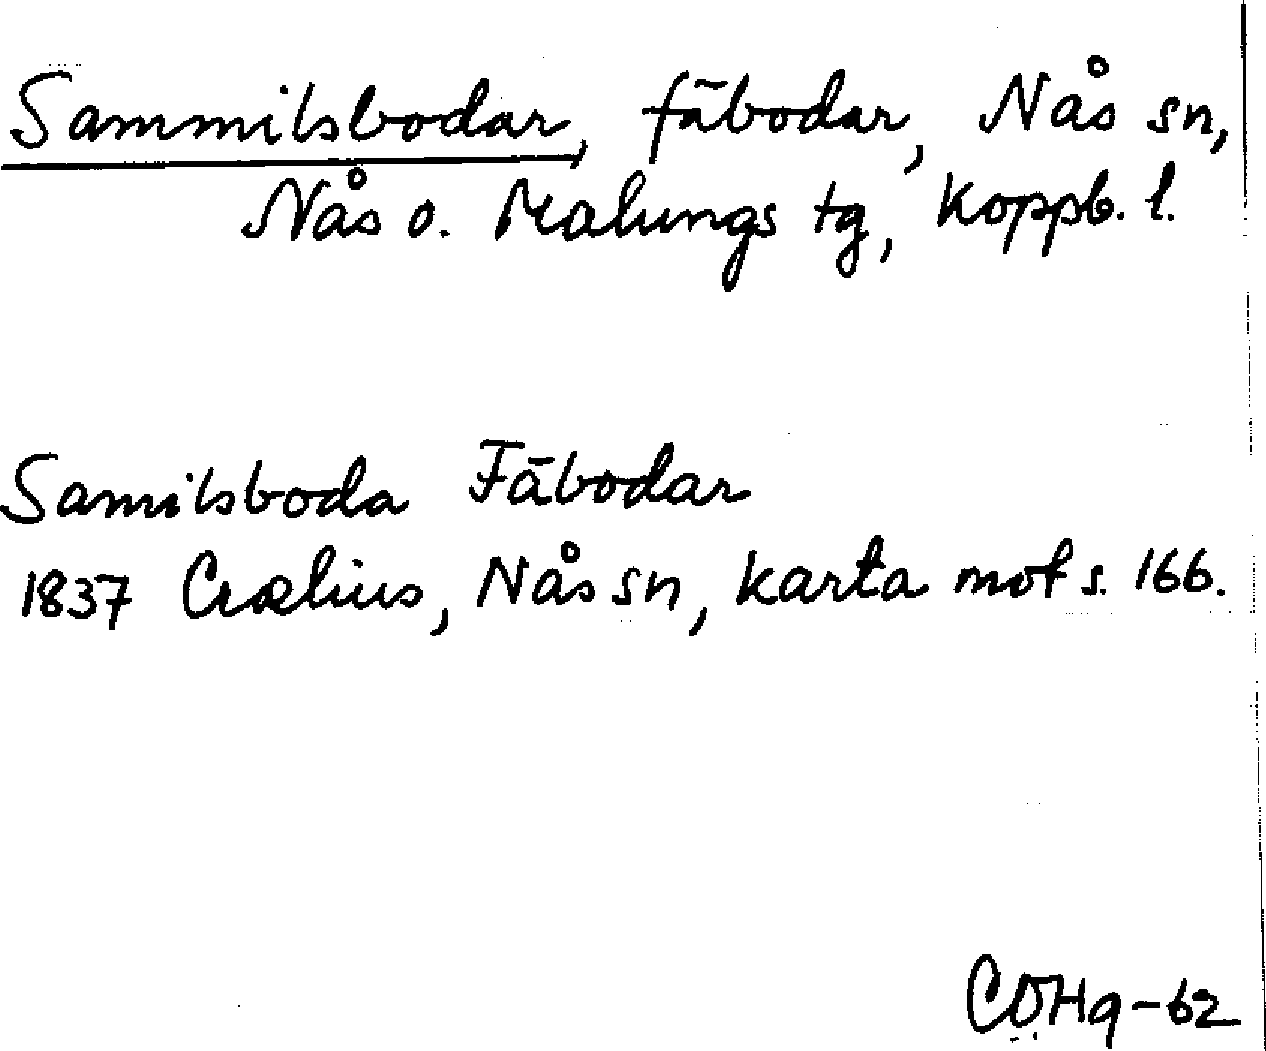 Sammilsbodar, fäbodar, Nås sn,
Nås o. Malungs tg, Koppb. l.
Samilsboda Fäbodar
1837 Crælius, Nås sn, karta mot s. 166.
CÖHg-62